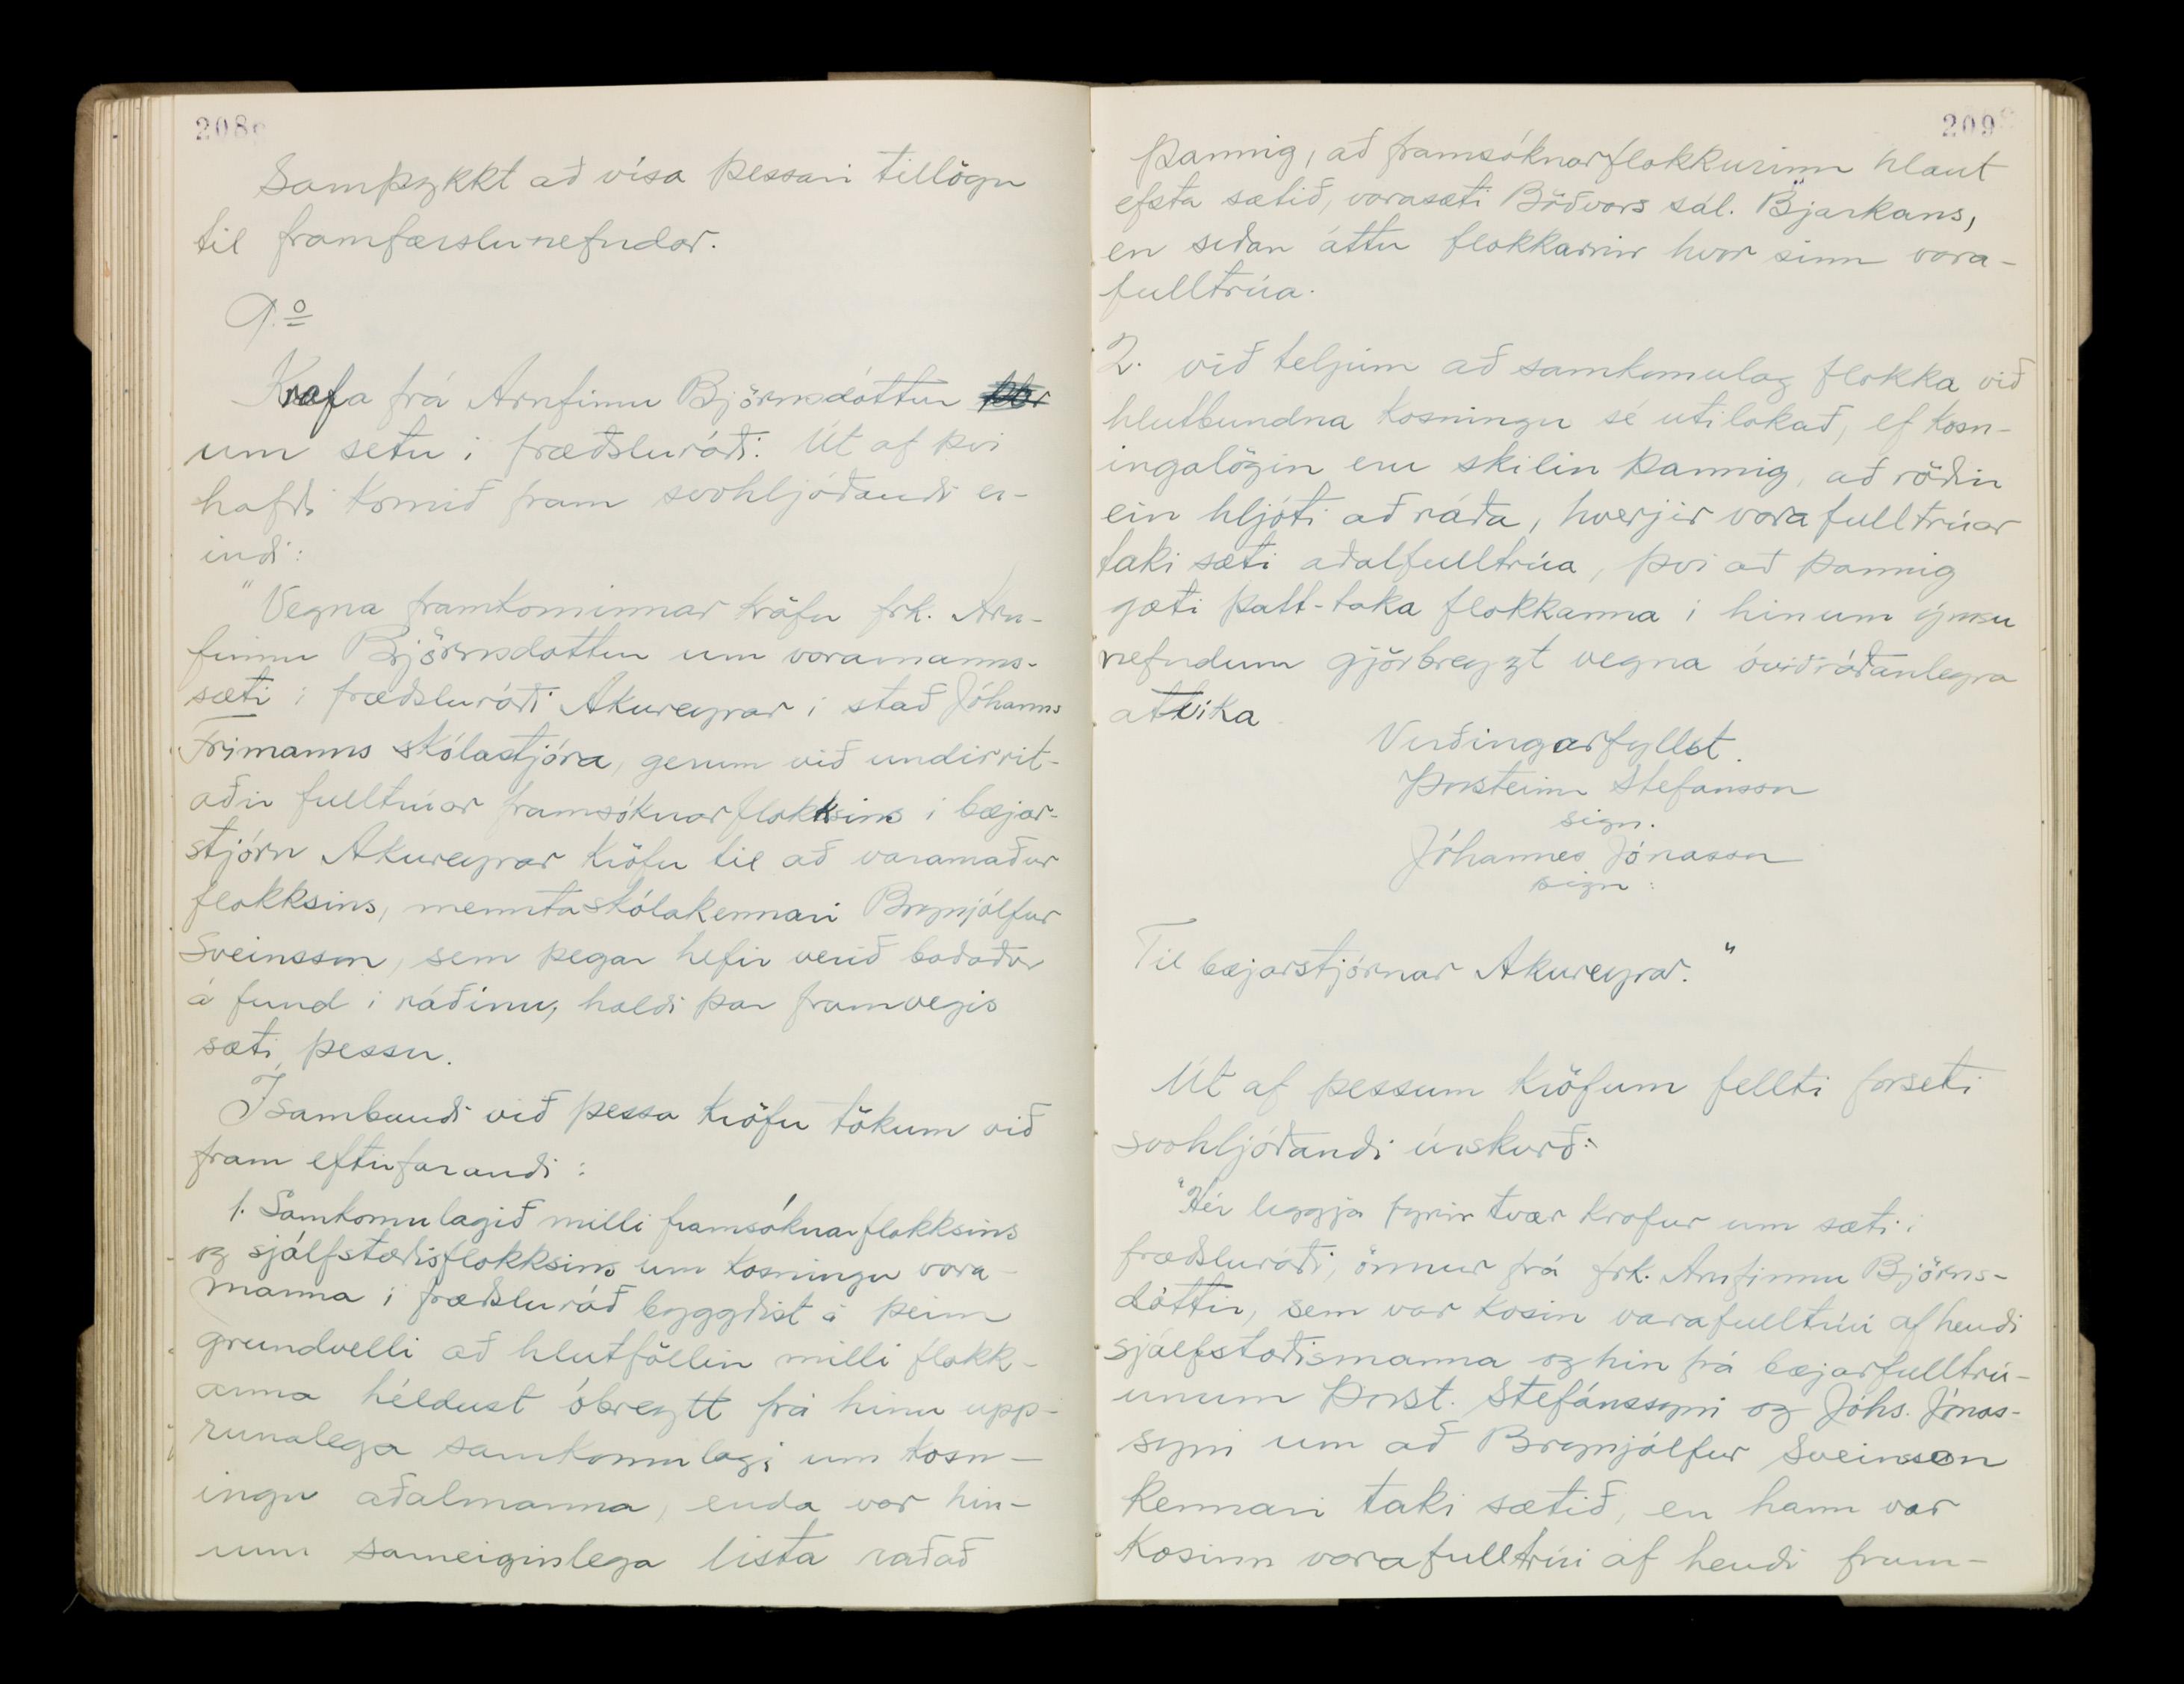 208
Samþykkt að vísa þessari tillögu
til framfærslunefndar.
9.o
Krafa frá Arnfinnu Björnsdóttur
um setu i fræðsluráði. Út af því
hafði komið fram svohljóðandi er-
indi:
"Vegna framkominnar kröfu frk. Arn-
finnu Björnsdottur um varamanns-
sæti i fræðsluráði Akureyrar i stað Jóhanns
Frimanns skólastjóra, gerum við undirrit-
aðir fulltrúar framsóknarflokksins i bæjar-
stjórn Akureyrar kröfu til að varamaður
flokksins, menntaskólakennari Brynjólfur
Sveinsson, sem þegar hefir verið boðaður
á fund i ráðinu, haldi þar framvegis
sæti þessu.
Í sambandi við þessa kröfu tökum við
fram eftirfarandi:
1. Samkomulagið milli framsóknarflokksins
og sjálfstæðisflokksins um kosningu vara-
manna i fræðsluráð byggðist á þeim
grundvelli að hlutföllin milli flokk-
anna héldust óbreytt frá hinu upp-
runalega samkomulagi um kosn-
ingu aðalmanna, enda var hin-
um sameiginlega lista raðað
209
þannig, að framsóknarflokkurinn hlaut
efsta sætið, varasæti Böðvars sál. Bjarkans,
en siðan áttu flokkarnir hvor sinn vara-
fulltrúa.
2. við teljum að samkomulag flokka við
hlutbundna kosningu sé utilokað, ef kosn-
ingalögin eru skilin þannig, að röðin
ein hljóti að ráða, hverjir varafulltrúar
taki sæti aðalfulltrúa, því að þannig
gæti þátt-taka flokkanna i hinum ýmsu
nefndum gjörbreyzt vegna óviðráðanlegra
atvika
Virðingarfyllst.
Þorsteinn Stefansson
sign.
Jóhannes Jónasson
sign:
Til bæjarstjórnar Akureyrar."
Út af þessum kröfum fellti forseti
svohljóðandi úrskurð:
"Hér leggja fyrir tvær kröfur um sæti i
fræðsluráði, önnur frá frk. Arnfinnu Björns-
dóttir, sem var kosin varafulltrúi af hendi
sjálfstæðismanna og hin frá bæjarfulltrú-
unum Þorst. Stefánssyni og Jóhs. Jónas-
syni um að Brynjólfur Sveinsson
kennari taki sætið, en hann var
kosinn varafulltrúi af hendi fram-